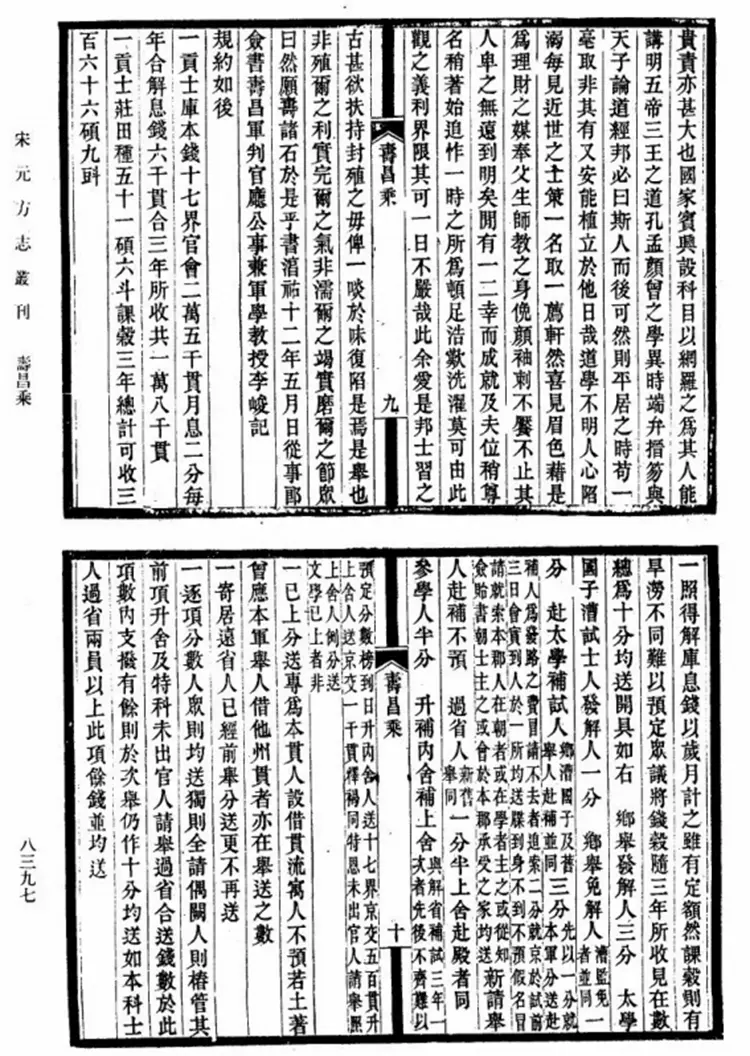 貴責亦甚大也國家賓興設科目以網羅之爲其人能
講明五帝三王之道孔孟顏曾之學異時端弁搢笏與
天子論道經邦必曰斯人而後可然則平居之時苟一
毫取非其有又安能植立於他日哉道學不明人心陷
溺每見近世之士策一名取一薦軒然喜見眉色藉是
爲理財之媒奉父生師教之身俛顏袖刺不饜不止其
人卑之無遠到明矣閒有一二幸而成就及夫位稍尊
名稍著始追怍一時之所爲頓足浩歎洗濯莫可由此
觀之義利界限其可一日不嚴哉此余愛是邦士習之
壽昌乘 九
古甚欲扶持封殖之毋俾一啖於味復陷是焉是舉也
非殖爾之利實完爾之氣非濡爾之竭實磨爾之節眾
曰然願壽諸石於是乎書淳祐十二年五月日從事郎
僉書壽昌軍判官廳公事兼軍學教授李峻記
規約如後
一貢士庫本錢十七界官會二萬五千貫月息二分每
年合解息錢六千貫合三年所收共一萬八千貫
一貢士莊田種五十一碩六斗課穀三年總計可收三
百六十六碩九㪷
宋元方志叢刊 壽昌乘
一照得解庫息錢以歲月計之雖有定額然課穀則有
旱澇不同難以預定眾議將錢穀隨三年所收見在數
總爲十分均送開具如右 鄉舉發解人三分 太學
國子漕試士人發解人一分 鄉舉免解人漕監免者並同一
分 赴太學補試人鄉漕國子及舊舉人赴補並同三分先以一分就本軍分送赴
補人爲發路之費冒請不去者追索二分就京於試前
三日會實到人於一所均送牒到身不到不預假名冒
請就索本郡人在朝者或在學者主之或從知
僉貽書朝士主之或會於本郡承受之家均送新請舉
人赴補不預 過省人新舊舉同一分半上舍赴殿者同
參學人半分 升補內舍補上舍與解省補試三年一次者先後不齊難以
預定分數榜到日升內舍人送十七界京交五百貫升
上舍人送京交一千貫釋褐同特恩未出官人請舉照
上舍人例分送
文學已上者非
一已上分送專爲本貫人設借貫流寓人不預若土著
曾應本軍舉人借他州貫者亦在舉送之數
一寄居遠省人已經前舉分送更不再送
一逐項分數人眾則均送獨則全請偶闕人則樁管其
前項升舍及特科未出官人請舉過省合送錢數於此
項數內支撥有餘則於次舉仍作十分均送如本科士
人過省兩員以上此項餘錢並均送
壽昌乘 十
八三九七